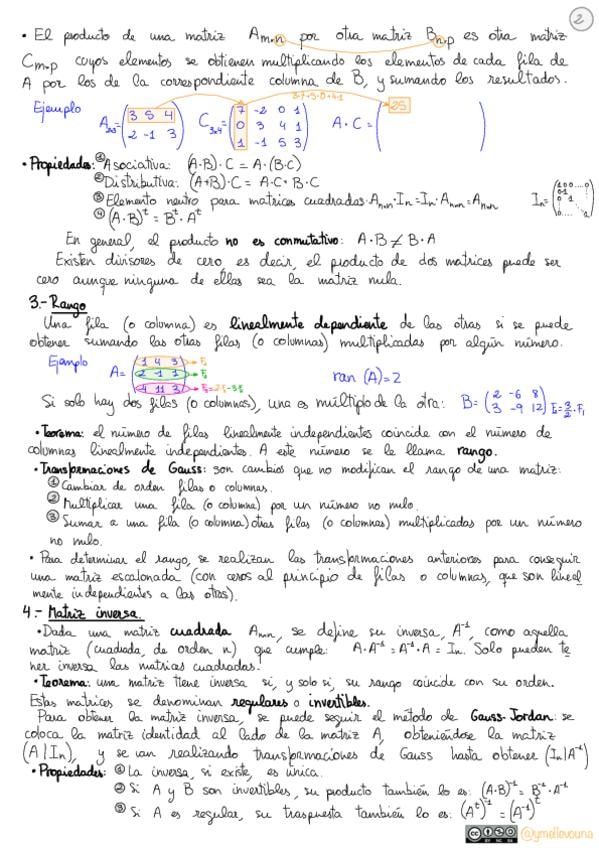 2
• El producto de una matriz Am×n por otra matriz Bn×p es otra matriz
Cm×p cuyos elementos se obtienen multiplicando los elementos de cada fila de
A por los de la correspondiente columna de B, y sumando los resultados.
3·7+5·0+4·1
Ejemplo A2x3=(3 5 4 C3x4=(7 -2 0 1 A·C=( 25 )
2 -1 3) 0 3 4 1
1 -1 5 3)
• Propiedades: ① Asociativa: (A·B)·C = A·(B·C)
② Distributiva: (A+B)·C = A·C+B·C
③ Elemento neutro para matrices cuadradas·An×n·In=In·An×n=An×n In=(1 0 0 ... 0
0 1
0 1
0 ... 1)
④ (A·B)^t = B^t·A^t
En general, el producto no es conmutativo: A·B ≠ B·A
Existen divisores de cero, es decir, el producto de dos matrices puede ser
cero aunque ninguna de ellas sea la matriz nula.
3.- Rango
Una fila (o columna) es linealmente dependiente de las otras si se puede
obtener sumando las otras filas (o columnas) multiplicadas por algún número.
Ejemplo A=(1 4 3 → F1
2 -1 1 → F2 ran (A)=2
4 11 3)
Si solo hay dos filas (o columnas), una es múltiplo de la otra: B=(2 -6 8
3 -9 12) F2=3/2·F1
• Teorema: el número de filas linealmente independientes coincide con el número de
columnas linealmente independientes. A este número se le llama rango.
• Transformaciones de Gauss: son cambios que no modifican el rango de una matriz:
① Cambiar de orden filas o columnas.
② Multiplicar una fila (o columna) por un número no nulo.
③ Sumar a una fila (o columna) otras filas (o columnas) multiplicadas por un número
no nulo.
• Para determinar el rango, se realizan las transformaciones anteriores para conseguir
una matriz escalonada (con ceros al principio de filas o columnas, que son lineal
mente independientes a las otras).
4.- Matriz inversa.
• Dada una matriz cuadrada An×n, se define su inversa, A⁻¹, como aquella
matriz (cuadrada, de orden n) que cumple: A·A⁻¹=A⁻¹·A=In. Solo pueden te
ner inversa las matrices cuadradas.
• Teorema: una matriz tiene inversa si, y solo si, su rango coincide con su orden.
Estas matrices se denominan regulares o invertibles.
Para obtener la matriz inversa, se puede seguir el método de Gauss-Jordan: se
coloca la matriz identidad al lado de la matriz A, obteniéndose la matriz
(A|In), y se van realizando transformaciones de Gauss hasta obtener (In|A⁻¹)
• Propiedades: ① La inversa, si existe, es única.
② Si A y B son invertibles, su producto también lo es: (A·B)⁻¹=B⁻¹·A⁻¹
③ Si A es regular, su traspuesta también lo es: (A^t)⁻¹=(A⁻¹)^t
CC BY NC SA @ymellevouna